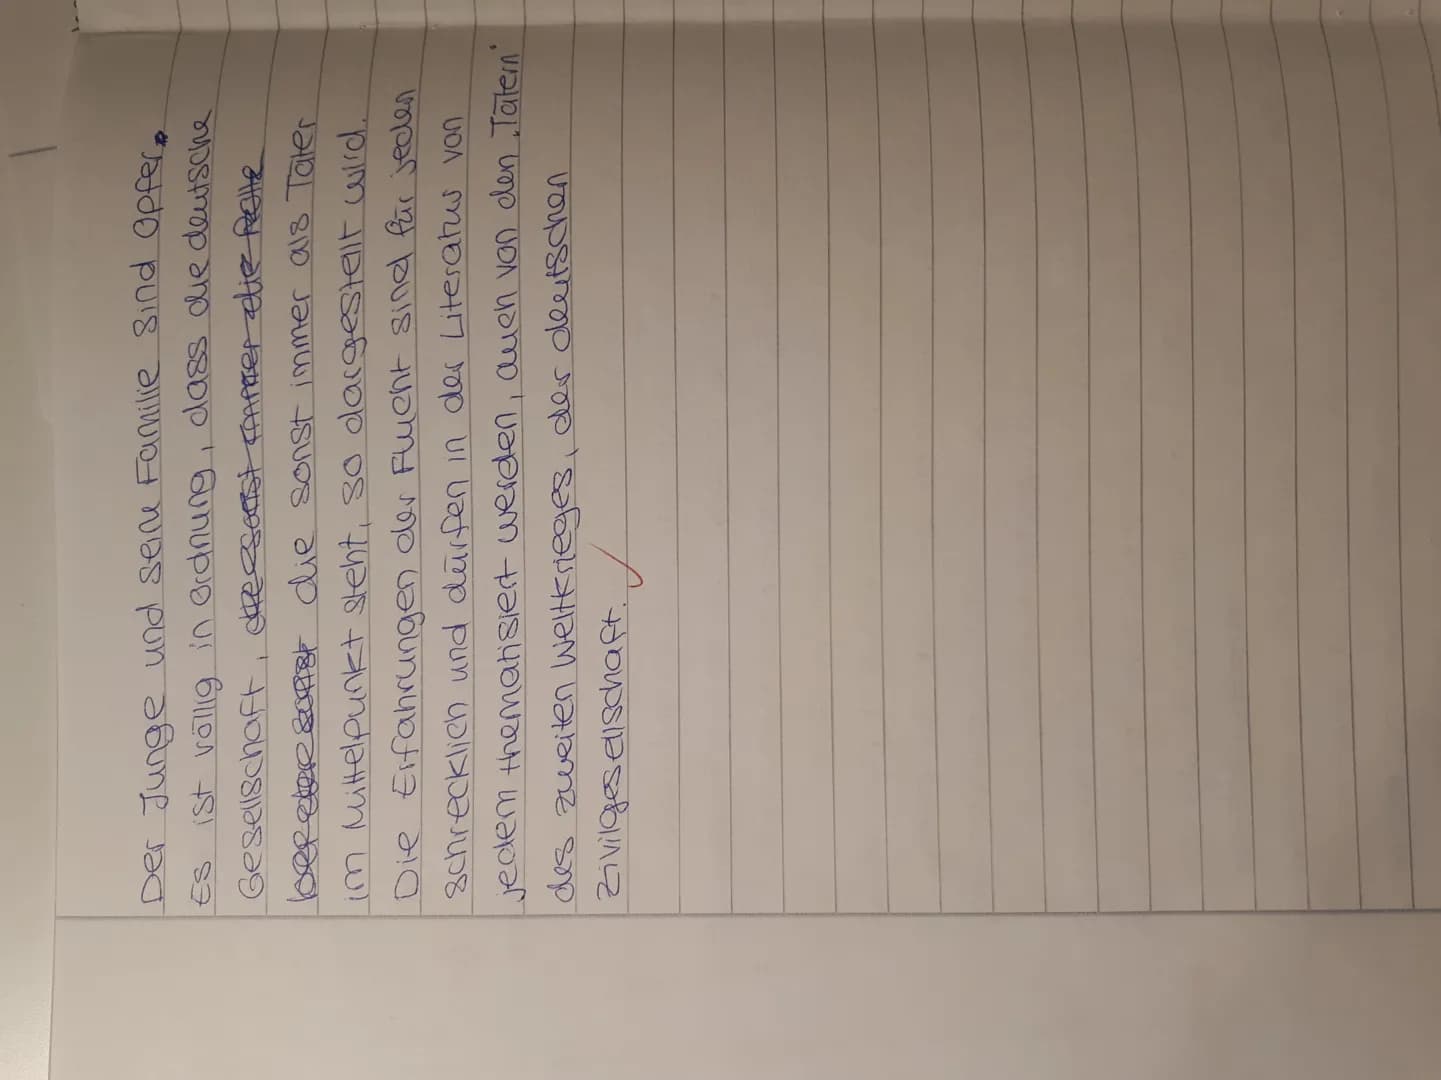 Der Junge und seine Familie sind Opfer.
Es ist völlig in Ordnung, dass die deutsche
Gesellschaft, die sonst immer die Rolle
die sonst immer als Täter
im Mittelpunkt steht, so dargestellt wird.
Die Erfahrungen der Flucht sind für jeden
schrecklich und dürfen in der Literatur von
jedem thematisiert werden, auch von den ,Tätern'
des zweiten Weltkrieges, der deutschen
Zivilgesellschaft.